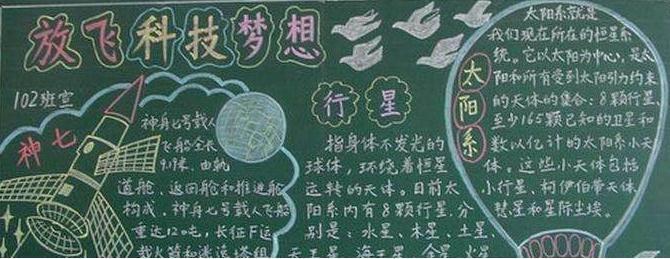 放飞科技梦想
102班宣
神七
神舟七号载人
飞船全长
9.19米，由轨
道舱、返回舱和推进舱
构成，神舟七号载人飞船
重达12吨，长征F运
载火箭和逃逸塔组
行星
指身体不发光的
球体，环绕着恒星
运转的天体。目前太
阳系内有8颗行星，分
别是：水星、木星、土星、
天王星、海王星、金星、火星
太阳系
太阳系就是
我们现在所在的恒星系
统。它以太阳为中心，是太
阳和所有受到太阳引力约束
的天体的集合：8颗行星，
至少165颗已知的卫星和
数以亿计的太阳系小天
体。这些小天体包括
小行星、柯伊伯带天体、
彗星和星际尘埃。